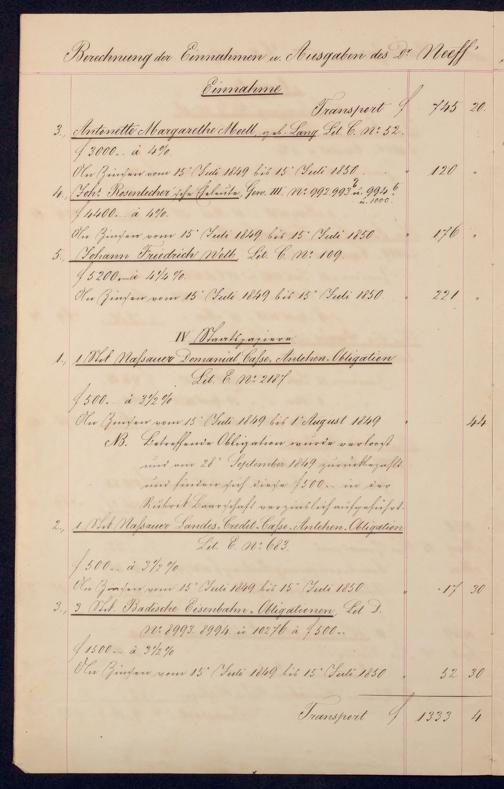 Berechnung der Einnahmen u. Ausgaben des Dr Neeff
Einnahme
Transport f 745 20
3., Antonette Margarethe geb. Lang Lit. C. No 52.
f 3000.- à 4%
An Zinsen vom 15. Juli 1849 bis 15. Juli 1850 " 120 "
4., Joh. Gew. III. No 992. 993 u. 994
u. 1000.
f 4400.- à 4%.
An Zinsen vom 15. Juli 1849 bis 15. Juli 1850 " 176 "
5. Johann Friedrich Lit. C. No 109.
f 5200.- à 4 1/4 %.
An Zinsen vom 15. Juli 1849 bis 15. Juli 1850 " 221 "
IV Staatspapiere
1., 1 Stck Nassauer Domanial Casse-Anlehen-Obligation
Lit. E. No 2187
f 500.- à 3 1/2 %
An Zinsen vom 15. Juli 1849 bis 1. August 1849 " 44
NB. Betreffende Obligation wurde verloost
und am 28. September 1849 zurückbezahlt
und finden sich diese f 500.- in der
Rubrik Baarschaft verzinslich aufgeführt.
2., 1 Stck Nassauer Landes-Credit-Casse-Anlehen-Obligation
Lit. E. No 683.
f 500.- à 3 1/2 %
An Zinsen vom 15. Juli 1849 bis 15. Juli 1850 " 17 30
3., 3 Stck Badische Eisenbahn-Obligationen Lit D.
No 8993. 8994. u 10276 à f 500.-
f 1500.- à 3 1/2 %
An Zinsen vom 15. Juli 1849 bis 15. Juli 1850 " 52 30
Transport f 1333 4